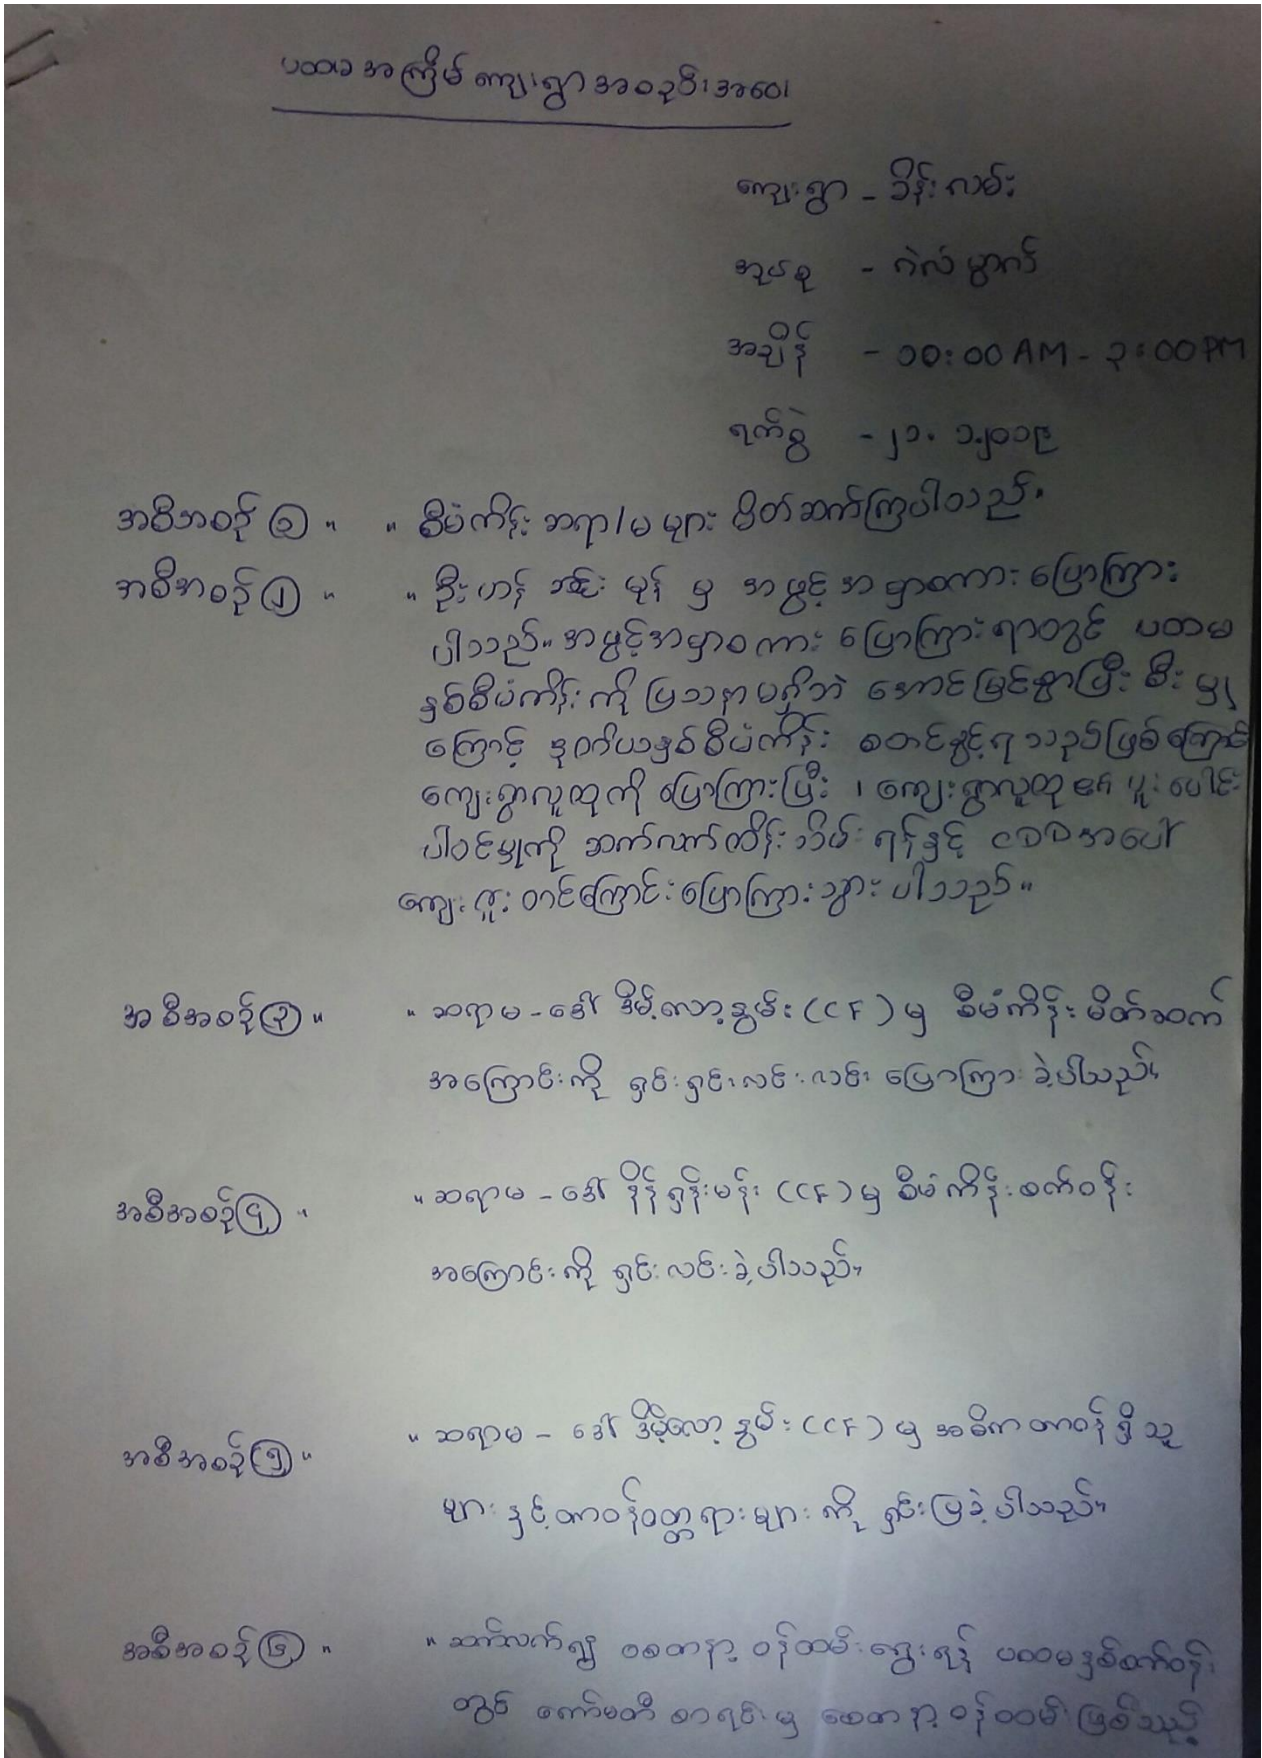 ပထမအကြိမ် ကျေးရွာအစည်းအဝေး
ကျေးရွာ - ခိန်းလမ်း
အုပ်စု - ဂဲလံမွာက်
အချိန် - ၁၀:၀၀ AM - ၃:၀၀ PM
ရက်စွဲ - ၂၁. ၁.၂၀၁၉
အစီအစဉ် (၁) ။ ။ စီမံကိန်း ဆရာ/မ များ မိတ်ဆက်ကြပါသည်။
အစီအစဉ် (၂) ။ ။ ဦးဟန် မုန် မှ အဖွင့်အမှာစကား ပြောကြား
ပါသည်။ အဖွင့်အမှာစကား ပြောကြားရာတွင် ပထမ
နှစ်စီမံကိန်းကို ပြဿနာမရှိဘဲ အောင်မြင်စွာပြီးစီးမှု
ကြောင့် ဒုတိယနှစ်စီမံကိန်း စတင်ခွင့်ရသည်ဖြစ်ကြောင်း
ကျေးရွာလူထုကို ပြောကြားပြီး ၊ ကျေးရွာလူထု၏ ပူးပေါင်း
ပါဝင်မှုကို ဆက်လက်ထိန်းသိမ်းရန်နှင့် CDD အပေါ်
ကျေးဇူးတင်ကြောင်းပြောကြားသွားပါသည်။
အစီအစဉ် (၃) ။ ။ ဆရာမ - ဒေါ် ဒိမ့်လော့နွမ်း (CF) မှ စီမံကိန်းမိတ်ဆက်
အကြောင်းကို ရှင်းရှင်းလင်းလင်း ပြောကြားခဲ့ပါသည်။
အစီအစဉ် (၄) ။ ။ ဆရာမ - ဒေါ် နိန်ရှန်းမန်း (CF) မှ စီမံကိန်းစက်ဝန်း
အကြောင်းကို ရှင်းလင်းခဲ့ပါသည်။
အစီအစဉ် (၅) ။ ။ ဆရာမ - ဒေါ် ဒိမ့်လော့နွမ်း (CF) မှ အဓိကတာဝန်ရှိသူ
များနှင့်တာဝန်ဝတ္တရားများကို ရှင်းပြခဲ့ပါသည်။
အစီအစဉ် (၆) ။ ။ ဆက်လက်၍ စေတနာ့ဝန်ထမ်းရွေးရန် ပထမနှစ်စက်ဝန်း
တွင် ကော်မတီစာရင်းမှ စေတနာ့ဝန်ထမ်းဖြစ်သည့်